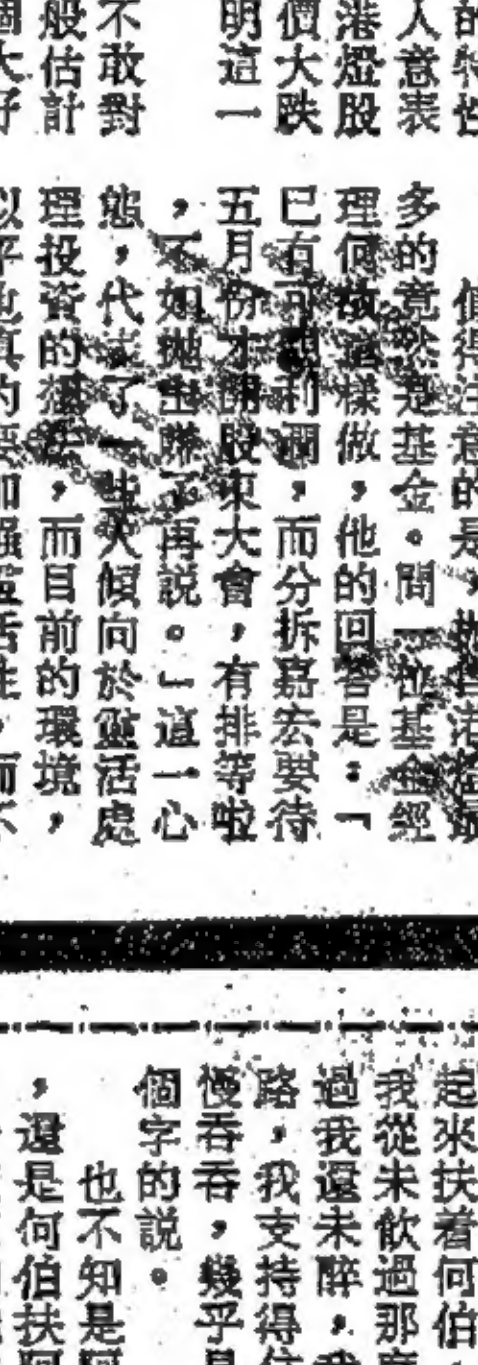 的特性
人意表
港燈股
價大跌
明這一
不敢對
般估計
個大好
值得注意的是，拋售港燈最
多的竟然是基金。問一位基金經
理何故這樣做，他的回答是：「
已有可觀利潤，而分拆嘉宏要待
五月份才開股東大會，有排等啦
，不如拋出賺了再說。」這一心
態，代表了一些人傾向於靈活處
理投資的想法，而目前的環境，
似乎也真的要加強靈活性，而不
起來扶着何伯
我從未飲過那
過我還未醉，我
路，我支持得住
慢吞吞，幾乎是
個字的說。
也不知是阿
，還是何伯扶阿